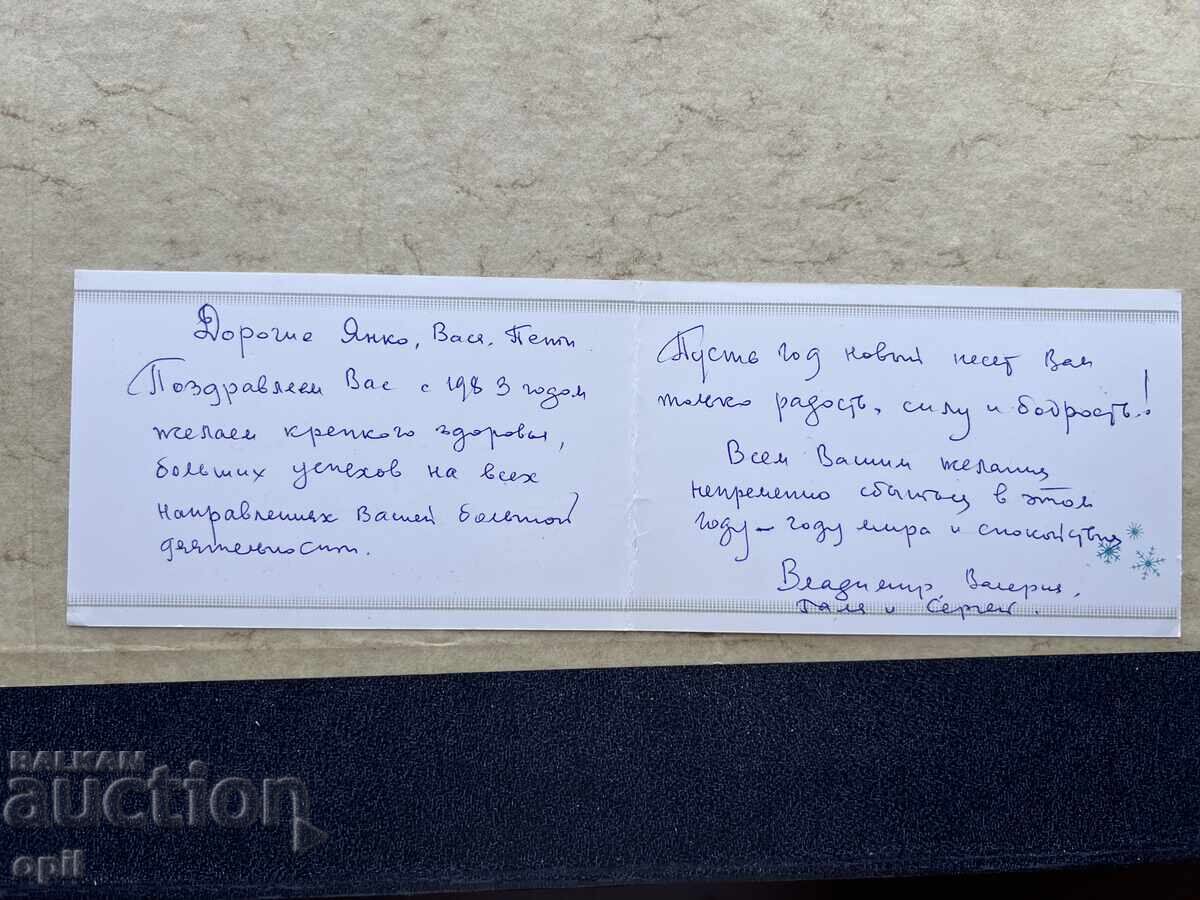 Дорогие Янко, Вася, Пепи
Поздравляем Вас с 1983 годом
желаем крепкого здоровья,
больших успехов на всех
направлениях Вашей большой
деятельности.
Пусть год новый несет Вам
только радость, силу и бодрость!
Всем Вашим желаниям
непременно сбыться в этом
году – году мира и спокойствия
Владимир, Валерия,
Галя и Сергей.
BALKAN
auction
opil